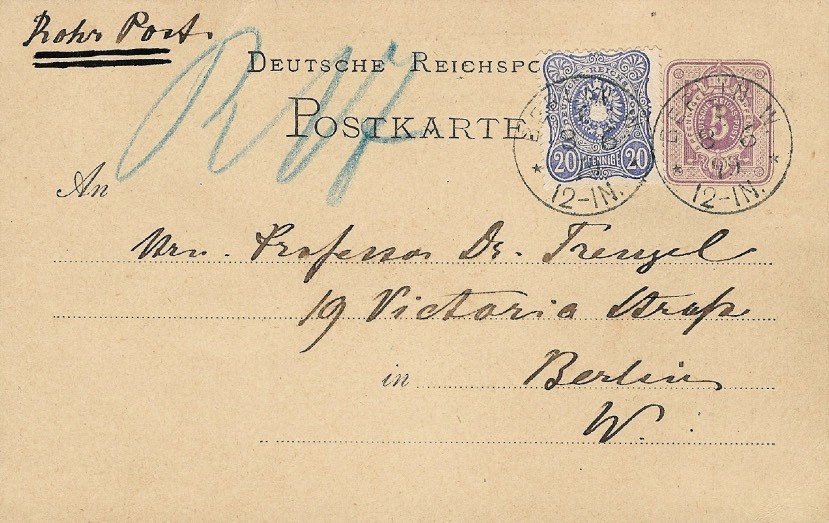 Rohr Post.
DEUTSCHE REICHSPO
POSTKARTE
20 PFENNIGE 20
5
BERLIN, W.
12-1N.
BERLIN, W.
12-1N.
An
Hrn. Professor Dr. Frenzel
19 Victoria Straße
in Berlin
W.